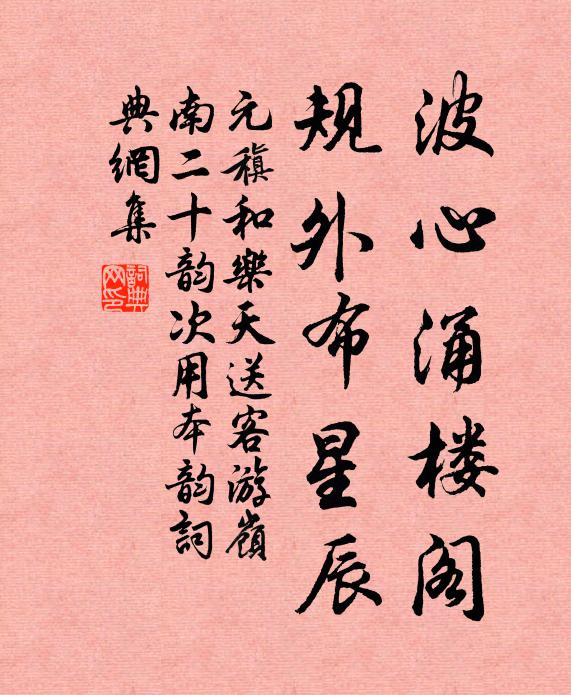 波心涌楼阁
规外布星辰
元稹和樂天送客游嶺
南二十韵次用本韵詞
典網集
詞典网印